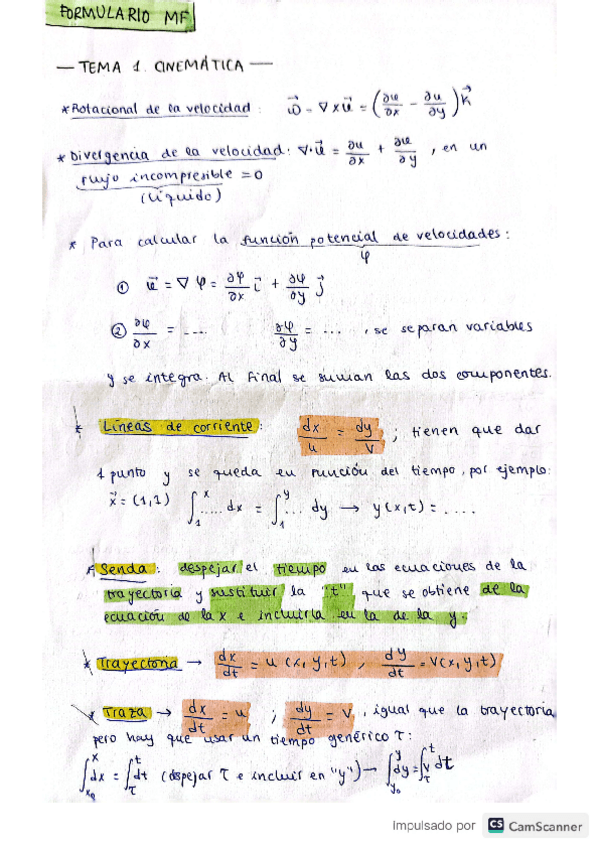 FORMULARIO MF
— TEMA 1. CINEMÁTICA —
* Rotacional de la velocidad : ω⃗ = ∇ x u⃗ = (∂v/∂x - ∂u/∂y) k⃗
* Divergencia de la velocidad: ∇·u⃗ = ∂u/∂x + ∂v/∂y , en un
flujo incompresible = 0
(líquido)
* Para calcular la función potencial de velocidades:
φ
① u⃗ = ∇φ = ∂φ/∂x i⃗ + ∂φ/∂y j⃗
② ∂φ/∂x = .... ∂φ/∂y = ... , se separan variables
y se integra. Al final se suman las dos componentes.
* Líneas de corriente: dx/u = dy/v ; tienen que dar
1 punto y se queda en función del tiempo, por ejemplo:
x⃗ = (1,1) ∫₁ˣ ..... dx = ∫₁ʸ ... dy → y(x,t) = ....
* Senda : despejar el tiempo en las ecuaciones de la
trayectoria y sustituir la "t" que se obtiene de la
ecuación de la x e incluirla en la de la y.
* Trayectoria → dx/dt = u (x,y,t) , dy/dt = v(x,y,t)
* Traza → dx/dt = u ; dy/dt = v , igual que la trayectoria
pero hay que usar un tiempo genérico τ :
∫ₓ₀ˣ dx = ∫τᵗ dt (dspejar τ e incluir en "y") → ∫y₀ʸ dy = ∫τᵗ v dt
Impulsado por CS CamScanner